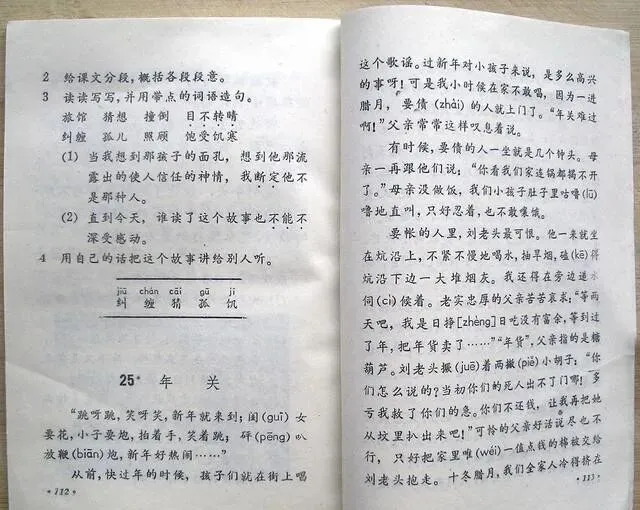 2 给课文分段,概括各段段意。
3 读读写写,并用带点的词语造句。
旅馆 猜想 撞倒 目不转睛
纠缠 孤儿 照顾 饱受饥寒
(1) 当我想到那孩子的面孔,想到他那流
露出的使人信任的神情,我断定他不
是那种人。
(2) 直到今天,谁读了这个故事也不能不
深受感动。
4 用自己的话把这个故事讲给别人听。
jiū chán cāi gū jī
纠 缠 猜 孤 饥
25* 年 关
“跳呀跳,笑呀笑,新年就来到;闺(guī)女
要花,小子要炮,拍着手,笑着跳;砰(pēng)叭
放鞭(biān)炮,新年好热闹……”
从前,快过年的时候,孩子们就在街上唱
·112·
这个歌谣。过新年对小孩子来说,是多么高兴
的事呀!可是我小时候在家不敢唱,因为一进
腊月,要债(zhài)的人就上门了。“年关难过
啊!”父亲常常这样叹息着说。
有时候,要债的人一坐就是几个钟头。母
亲一再跟他们说:“你看我们家连锅都揭不开
了。”母亲没做饭,我们小孩子肚子里咕噜(lū)
噜地直叫,只好忍着,也不敢嚷饿。
要帐的人里,刘老头最可恨。他一来就坐
在炕沿上,不紧不慢地喝水,抽旱烟,磕(kē)得
炕沿下边一大堆烟灰。我还得在旁边递水
伺(cì)候着。老实忠厚的父亲苦苦哀求:“等两
天吧,我是日挣[zhèng]日吃没有富余,等到过
了年,把年货卖了……”“年货”,父亲指的是糖
葫芦。刘老头撅(juē)着两撇(piě)小胡子:“你
们怎么说的?当初你们的死人出不了门哪!多
亏我救了你们的急。你们不还钱,让我再把她
从坟里扒出来吧!”可怜的父亲好话说尽也不
行,只好把家里唯(wéi)一值点钱的棉被交给
刘老头抱走。十冬腊月,我们全家人冷得挤在
·113·